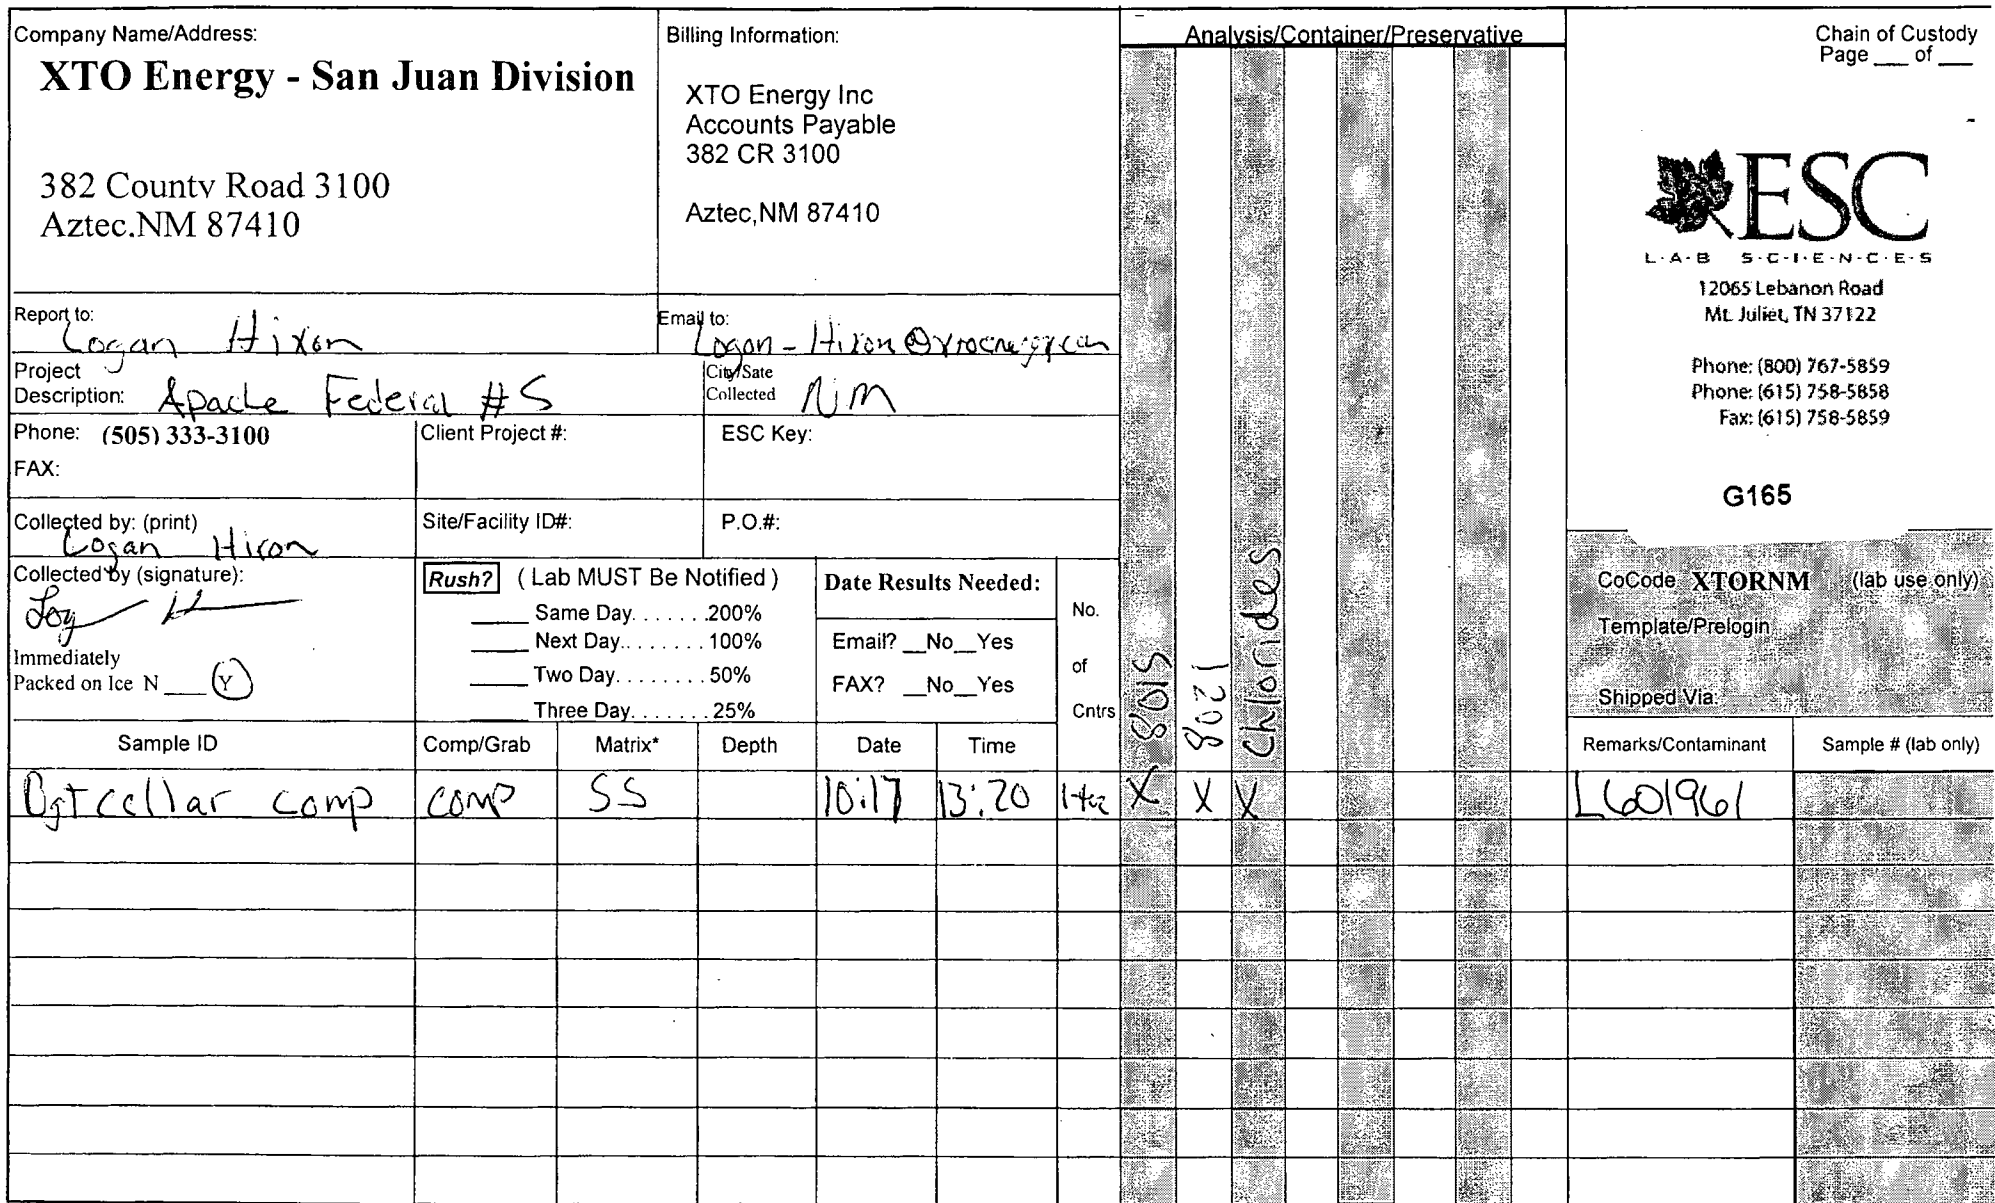 Company Name/Address:
XTO Energy - San Juan Division
382 County Road 3100
Aztec.NM 87410
Billing Information:
XTO Energy Inc
Accounts Payable
382 CR 3100
Aztec,NM 87410
Analysis/Container/Preservative
Chain of Custody
Page ___ of ___
ESC
L·A·B S·C·I·E·N·C·E·S
12065 Lebanon Road
Mt. Juliet, TN 37122
Phone: (800) 767-5859
Phone: (615) 758-5858
Fax: (615) 758-5859
G165
Report to:
Logan Hixon
Email to:
Project
Description: Apache Federal #5
City/Sate
Collected NM
Phone: (505) 333-3100
FAX:
Client Project #:
ESC Key:
Collected by: (print)
Logan Hixon
Site/Facility ID#:
P.O.#:
Collected by (signature):
Immediately
Packed on Ice N ___ Y
Rush? ( Lab MUST Be Notified )
____ Same Day. . . . . . .200%
____ Next Day. . . . . . . 100%
____ Two Day. . . . . . . . 50%
____ Three Day. . . . . . . 25%
Date Results Needed:
Email? __No__Yes
FAX? __No__Yes
No.
of
Cntrs
8015
8021
Chlorides
CoCode XTORNM (lab use only)
Template/Prelogin
Shipped Via:
Sample ID Comp/Grab Matrix* Depth Date Time Remarks/Contaminant Sample # (lab only)
Bgt cellar comp comp SS 10:17 13:20 X X X L601961